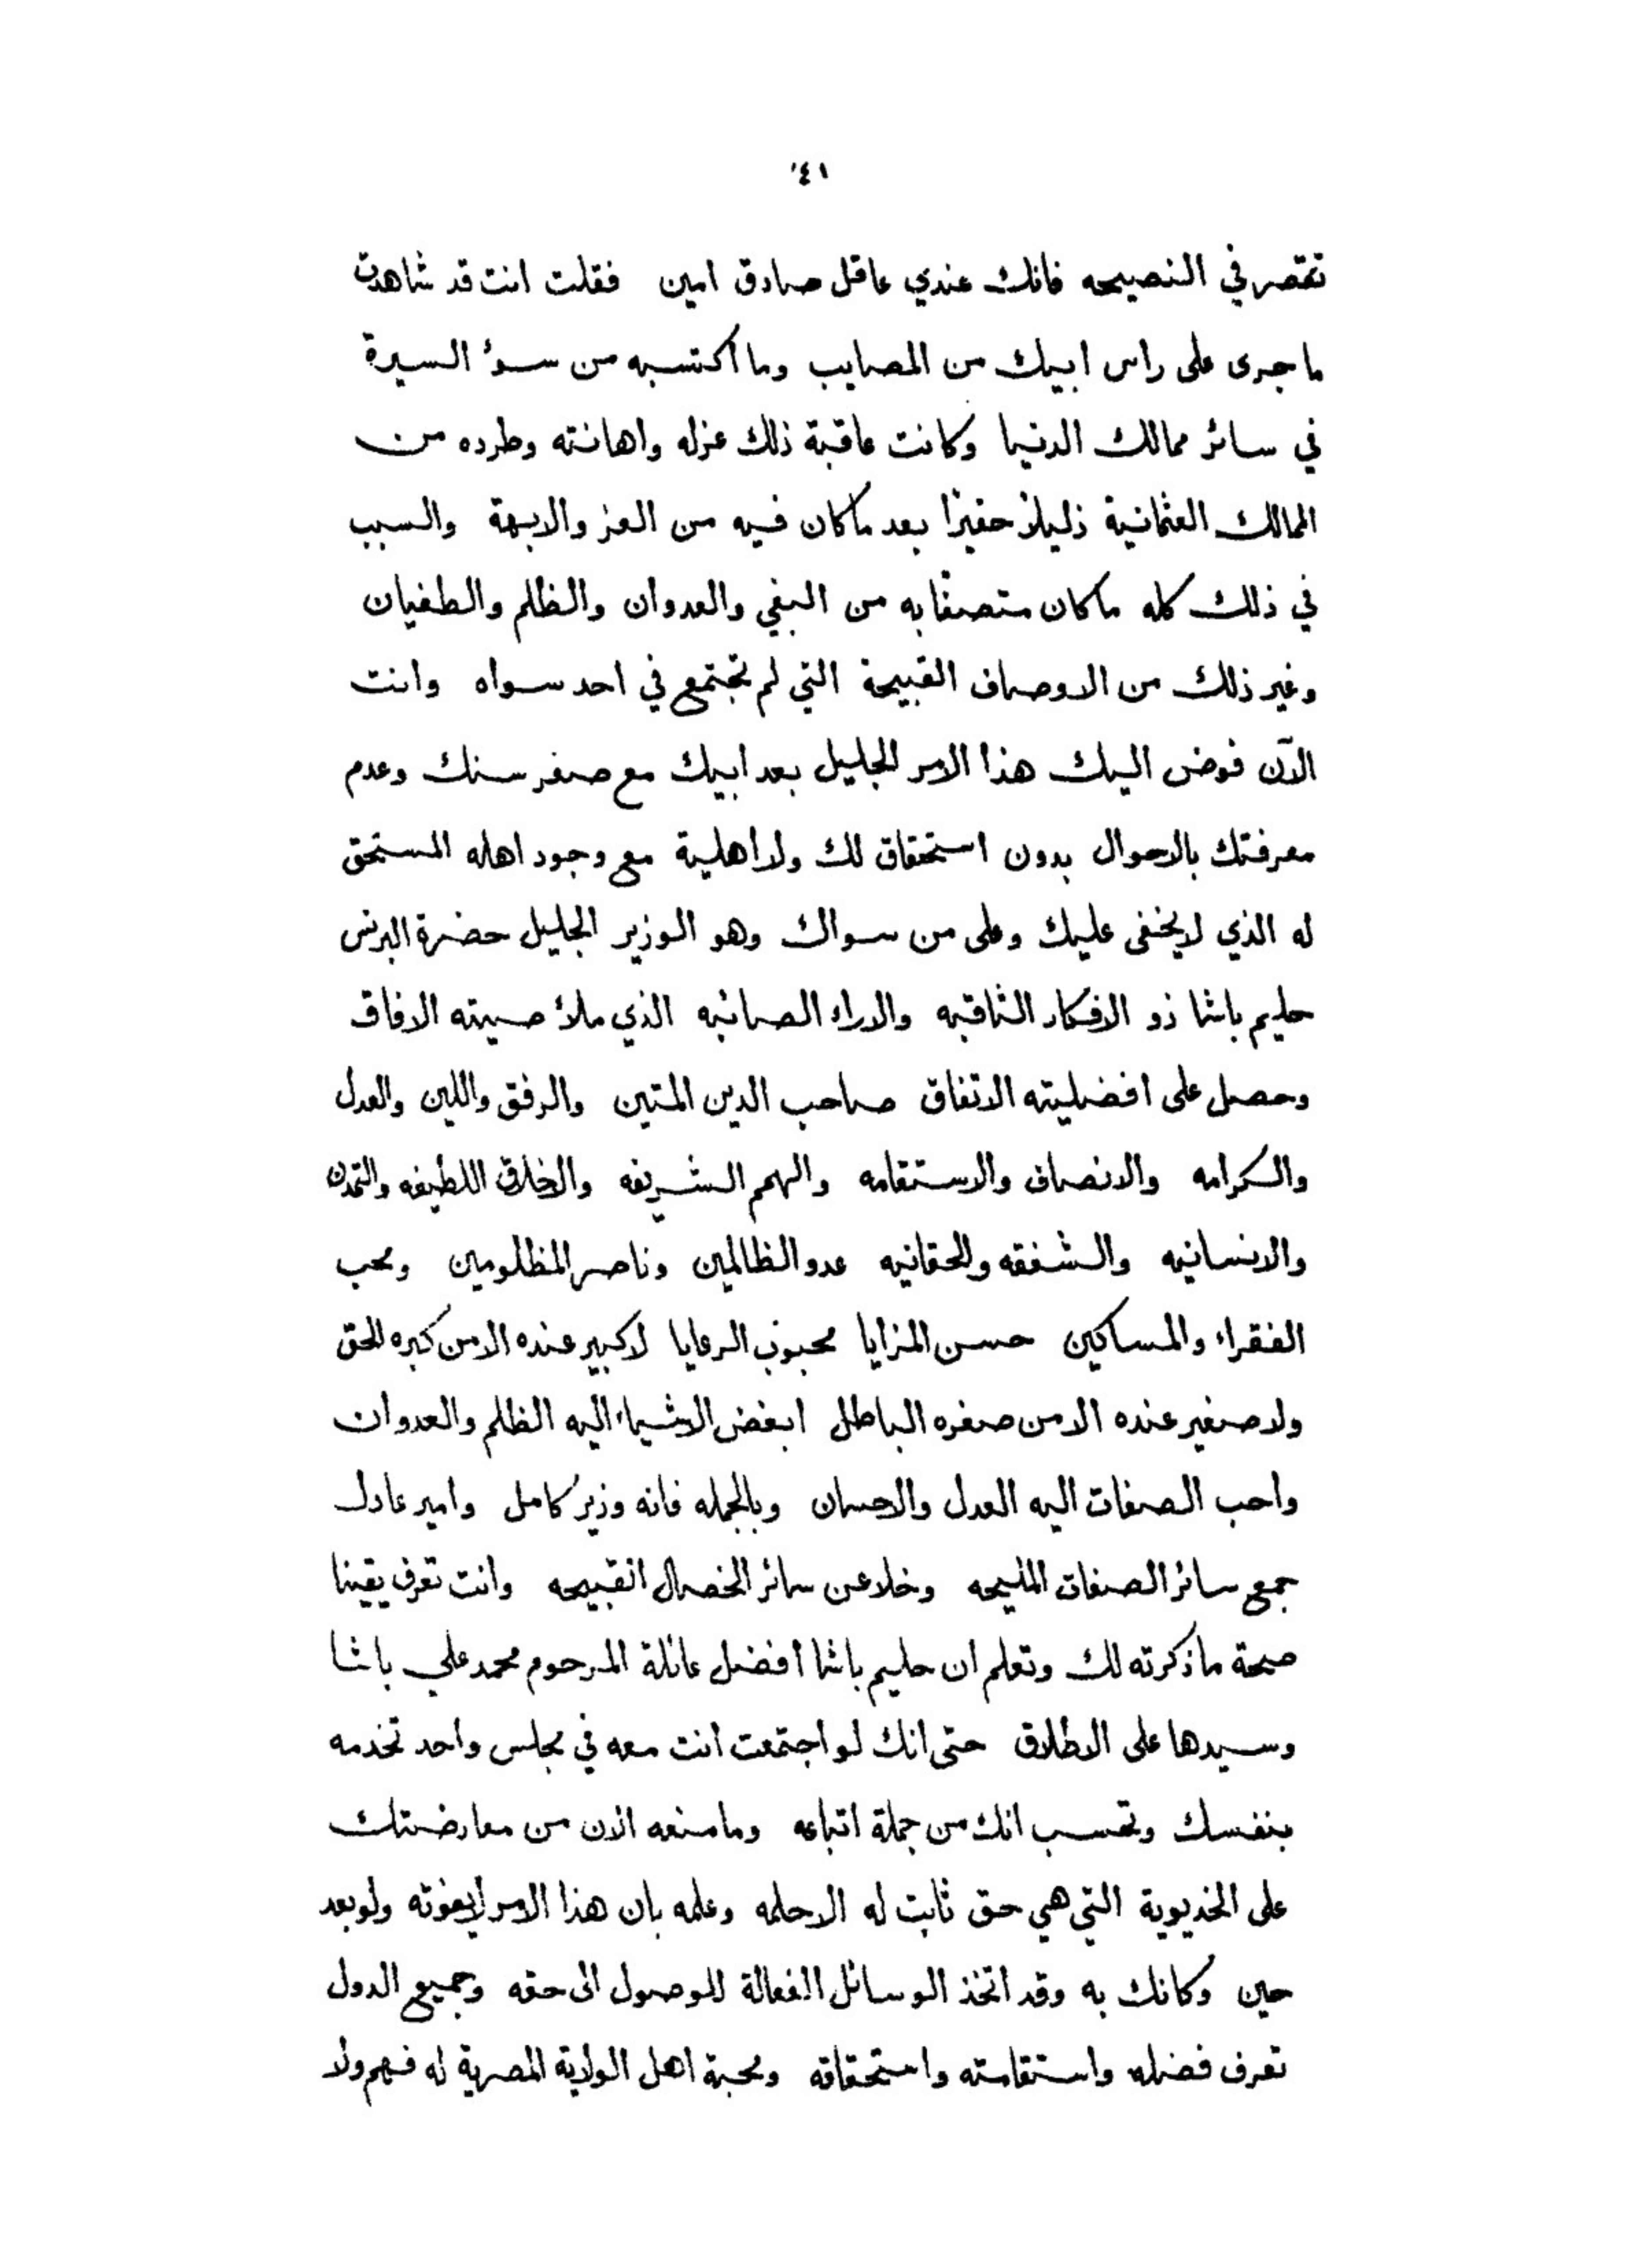 ١٤١
تقصر في النصيحه فانك عندي عاقل صادق امين فقلت انت قد شاهدت
ما جرى على راس ابيك من المصايب وما اكتسبه من سوء السيرة
في سائر ممالك الدنيا وكانت عاقبة ذلك عزله واهانته وطرده من
الممالك العثمانية ذليلاً حقيرًا بعد ما كان فيه من العز والابهة والسبب
في ذلك كله ما كان متصفًا به من البغي والعدوان والظلم والطغيان
وغير ذلك من الاوصاف القبيحة التي لم تجتمع في احد سواه وانت
الآن فوض اليك هذا الامر الجليل بعد ابيك مع صغر سنك وعدم
معرفتك بالاحوال بدون استحقاق لك ولا اهلية مع وجود اهله المستحق
له الذي لا يخفى عليك وعلى من سواك وهو الوزير الجليل حضرة البرنس
حليم باشا ذو الافكار الثاقبه والاراء الصائبه الذي ملأ صيته الافاق
وحصل على افضليته الاتفاق صاحب الدين المتين والرفق واللين والعدل
والكرامه والانصاف والاستقامه والهمم الشريفه والاخلاق اللطيفه والتمدن
والانسانيه والشفقه والحقانيه عدو الظالمين وناصر المظلومين ومحب
الفقراء والمساكين حسن المزايا محبوب الرعايا لا كبير عنده الا من كبره الحق
ولا صغير عنده الا من صغره الباطل ابغض الاشياء اليه الظلم والعدوان
واحب الصفات اليه العدل والاحسان وبالجمله فانه وزير كامل وامير عادل
جمع سائر الصفات المليحه وخلا عن سائر الخصال القبيحه وانت تعرف يقينا
صحة ما ذكرته لك وتعلم ان حليم باشا أفضل عائلة المرحوم محمد علي باشا
وسيدها على الاطلاق حتى انك لو اجتمعت انت معه في مجلس واحد تخدمه
بنفسك وتحسب انك من جملة اتباعه وما منعه الان من معارضتك
على الخديوية التي هي حق ثابت له الا حلمه وعلمه بان هذا الامر لا يفوته ولو بعد
حين وكانك به وقد اتخذ الوسائل الفعالة للوصول الى حقه وجميع الدول
تعرف فضله واستقامته واستحقاقه ومحبة اهل الولاية المصرية له فهم ولا